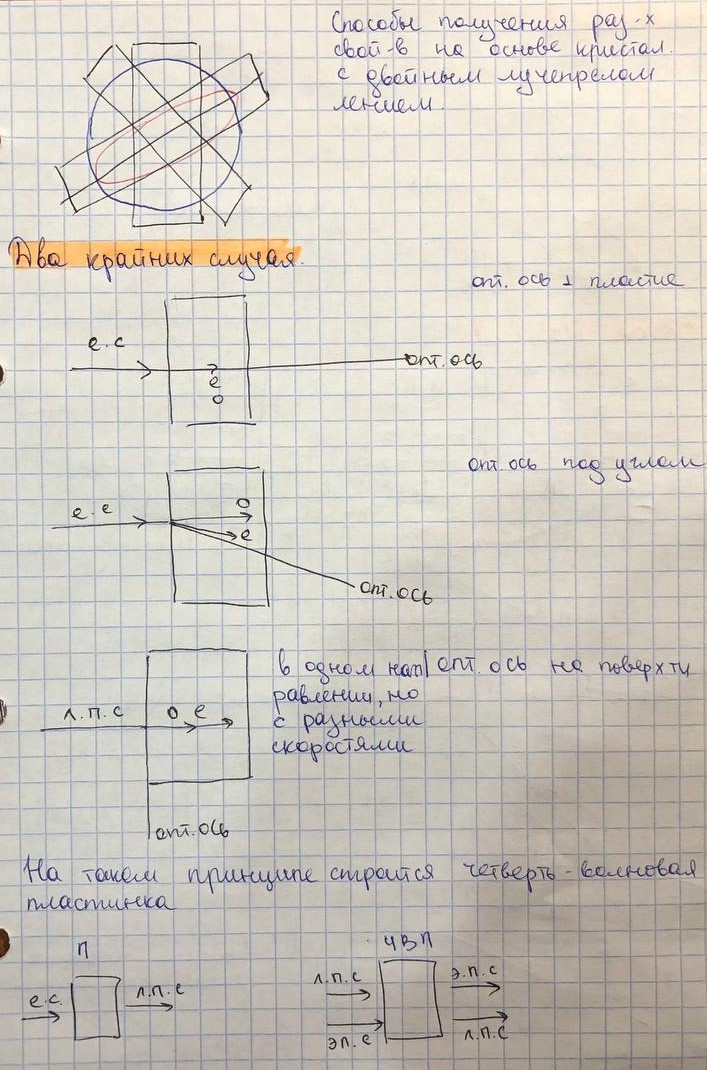 Способы получения раз-х
свой-в на основе кристал.
с двойным лучепрелом
лением.
Два крайних случая.
опт. ось ⊥ пластие
е.с
опт. ось
е
о
опт. ось под углом
е.е
о
е
опт. ось
в одном нап| опт. ось на поверх-ти
равлении, но
с разными
скоростями
л.п.с
о е
опт. ось
На таком принципе строится четверть-волновая
пластинка
П
ЧВП
е.с.
л.п.с
л.п.с
э.п.с
эп.с
л.п.с